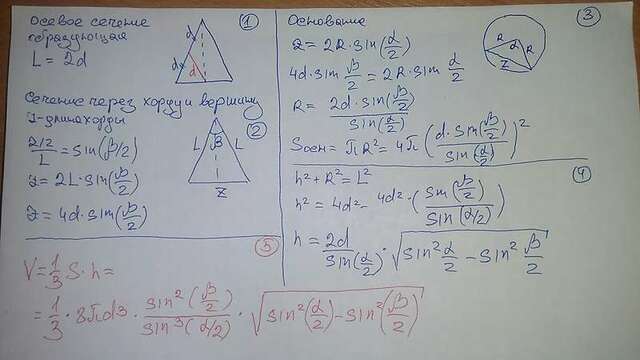 Осевое сечение
образующая
L = 2d
①
d
d
d
Сечение через хорду и вершину
Z-длина хорды
②
(Z/2)/L = sin(β/2)
Z = 2L·sin(β/2)
Z = 4d·sin(β/2)
L
β
L
Z
Основание
③
Z = 2R·sin(α/2)
4d·sin β/2 = 2R·sin α/2
R = 2d·sin(β/2)/sin(α/2)
Sосн = πR² = 4π(d·sin(β/2)/sin(α/2))²
R
α
R
Z
④
h² + R² = L²
h² = 4d² - 4d²·(sin(β/2)/sin(α/2))²
h = 2d/sin(α/2)·√(sin² α/2 - sin² β/2)
⑤
V = 1/3 S·h =
= 1/3 · 8πd³ · sin²(β/2)/sin³(α/2) · √(sin²(α/2) - sin²(β/2))